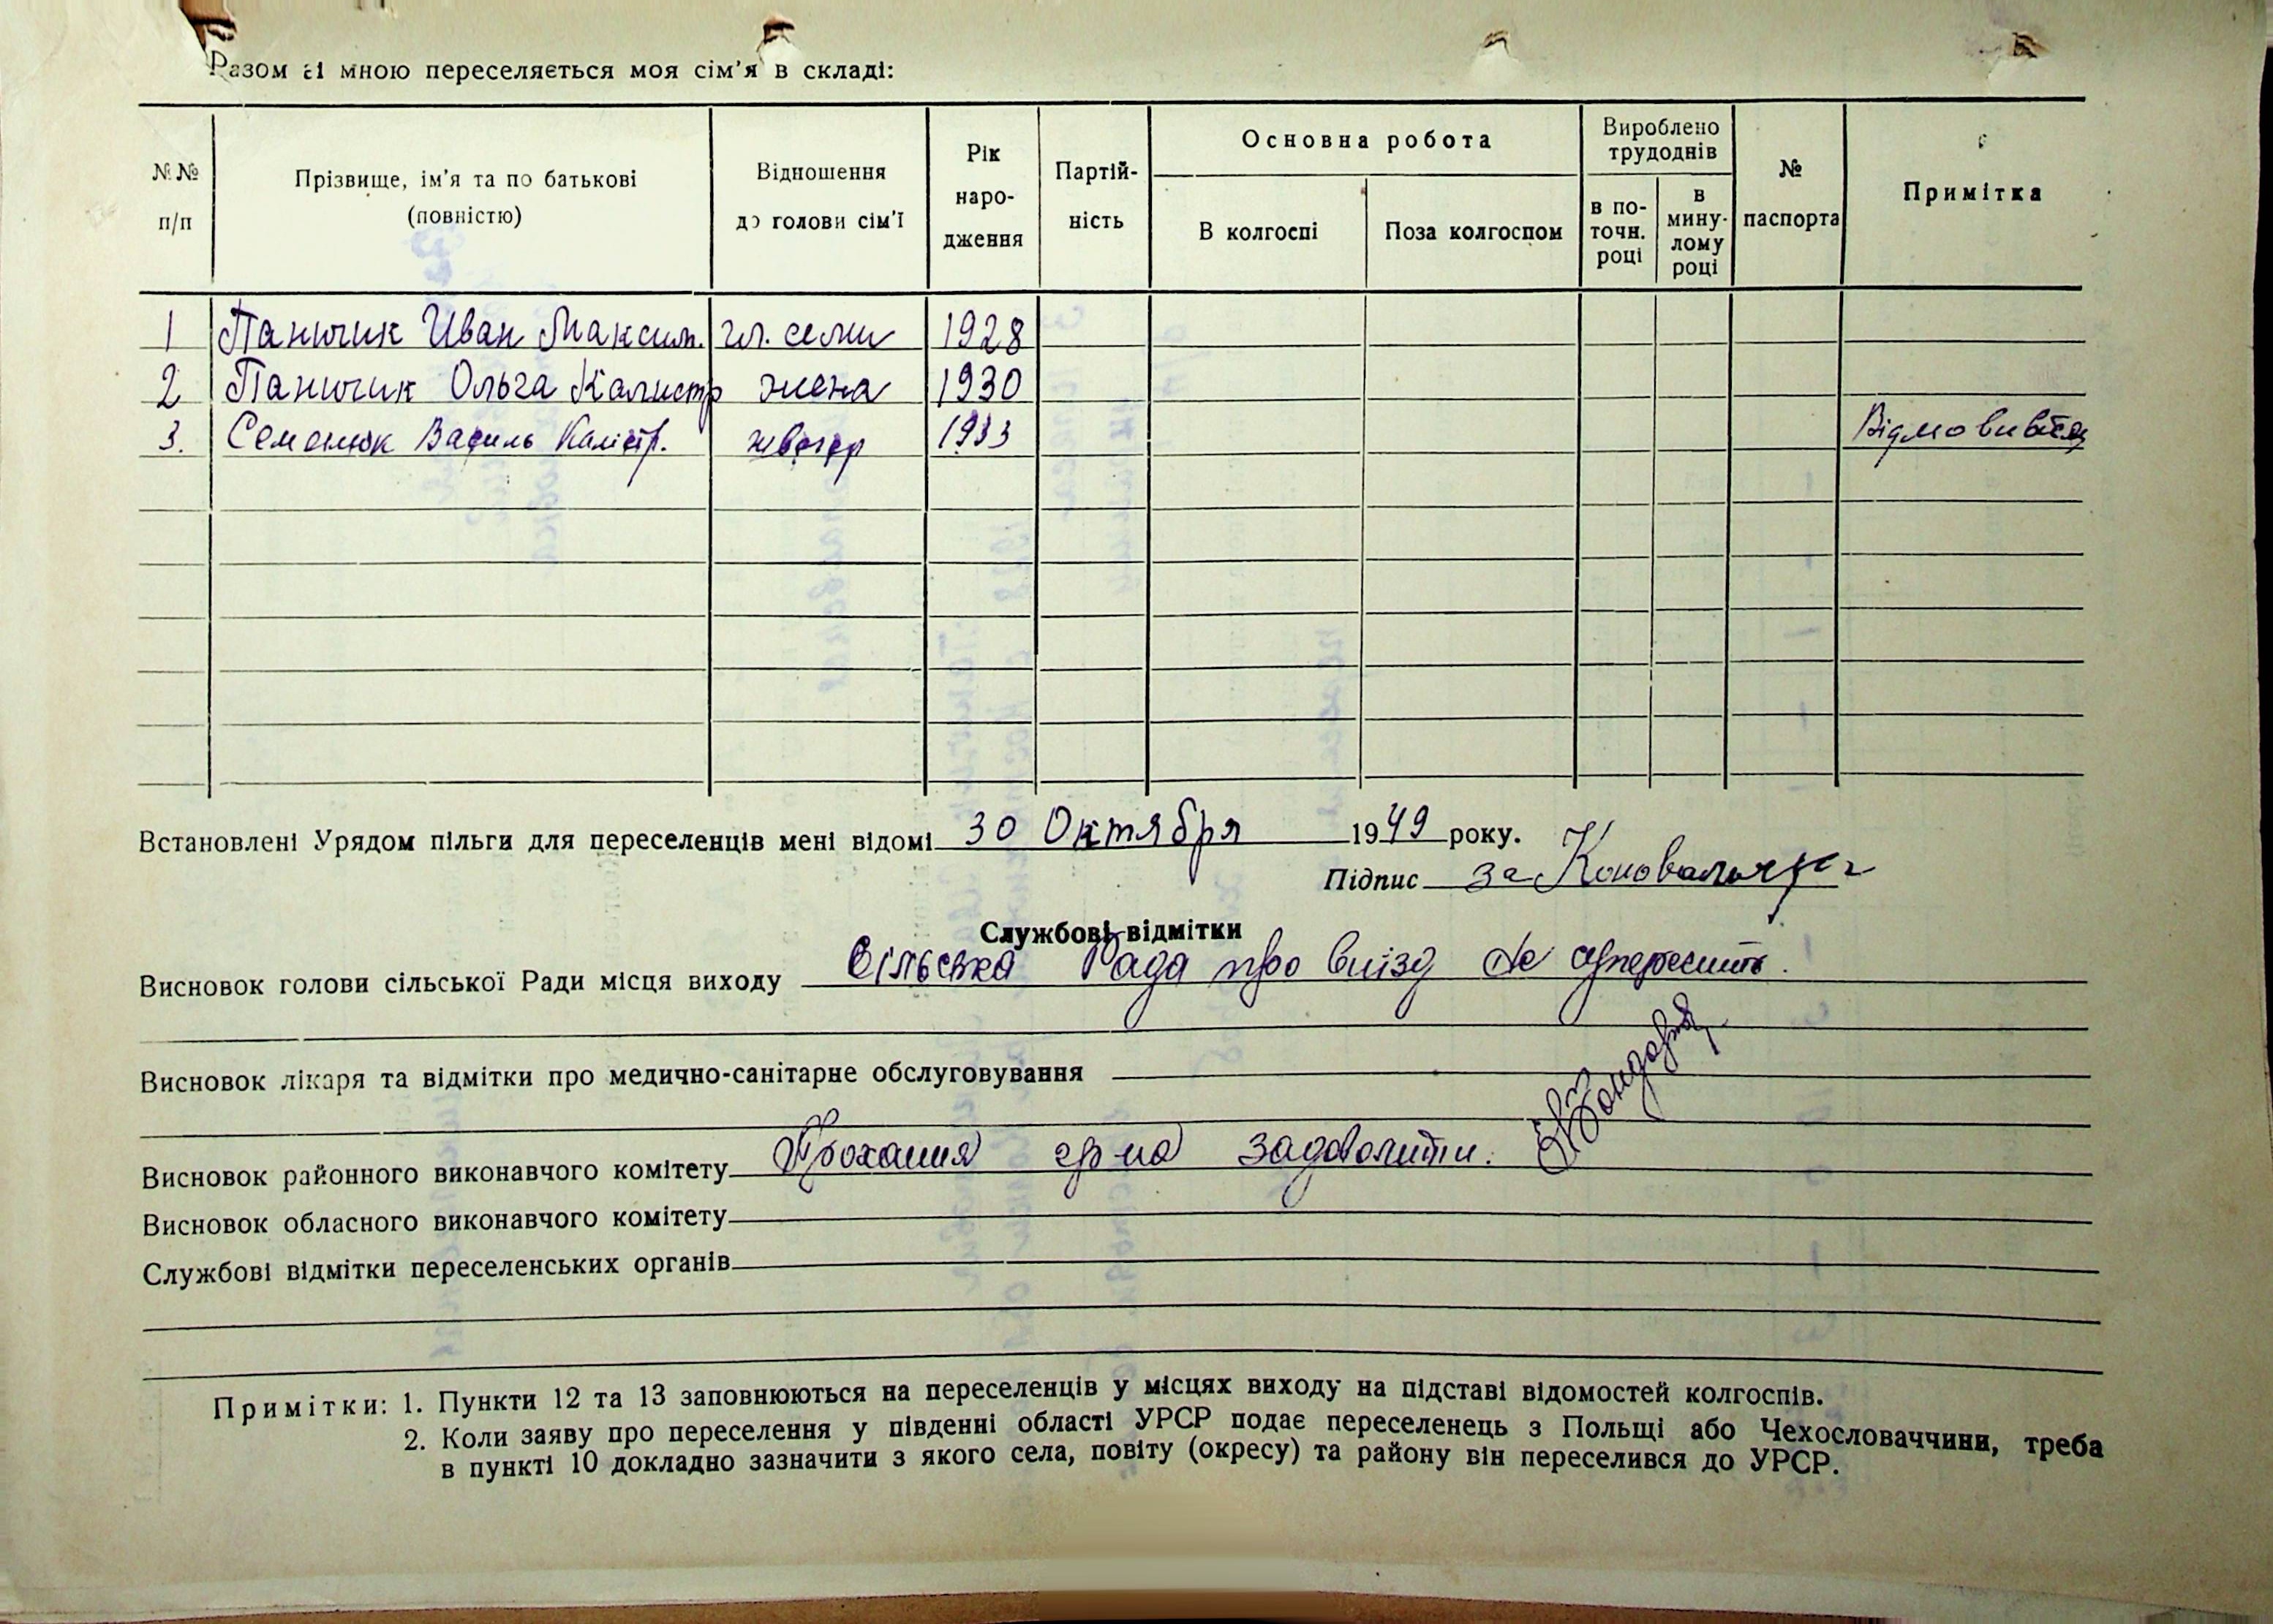 Разом зі мною переселяється моя сім'я в складі:
№№ п/п
Прізвище, ім'я та по батькові (повністю)
Відношення до голови сім'ї
Рік наро-дження
Партій-ність
Основна робота
В колгоспі
Поза колгоспом
Вироблено трудоднів
в по-точн. році
в мину-лому році
№ паспорта
Примітка
1 Панючик Иван Максим. гл. семи 1928
2 Панючик Ольга Калистр жена 1930
3. Семенюк Василь Калістр. швагер 1933 Відмовився
Встановлені Урядом пільги для переселенців мені відомі 30 Октября 1949 року.
Підпис за
Службові відмітки
Висновок голови сільської Ради місця виходу Сільська Рада про виїзд не
Висновок лікаря та відмітки про медично-санітарне обслуговування
Висновок районного виконавчого комітету Прохання гр-на задоволити.
Висновок обласного виконавчого комітету
Службові відмітки переселенських органів
Примітки: 1. Пункти 12 та 13 заповнюються на переселенців у місцях виходу на підставі відомостей колгоспів.
2. Коли заяву про переселення у південні області УРСР подає переселенець з Польщі або Чехословаччини, треба
в пункті 10 докладно зазначити з якого села, повіту (окресу) та району він переселився до УРСР.